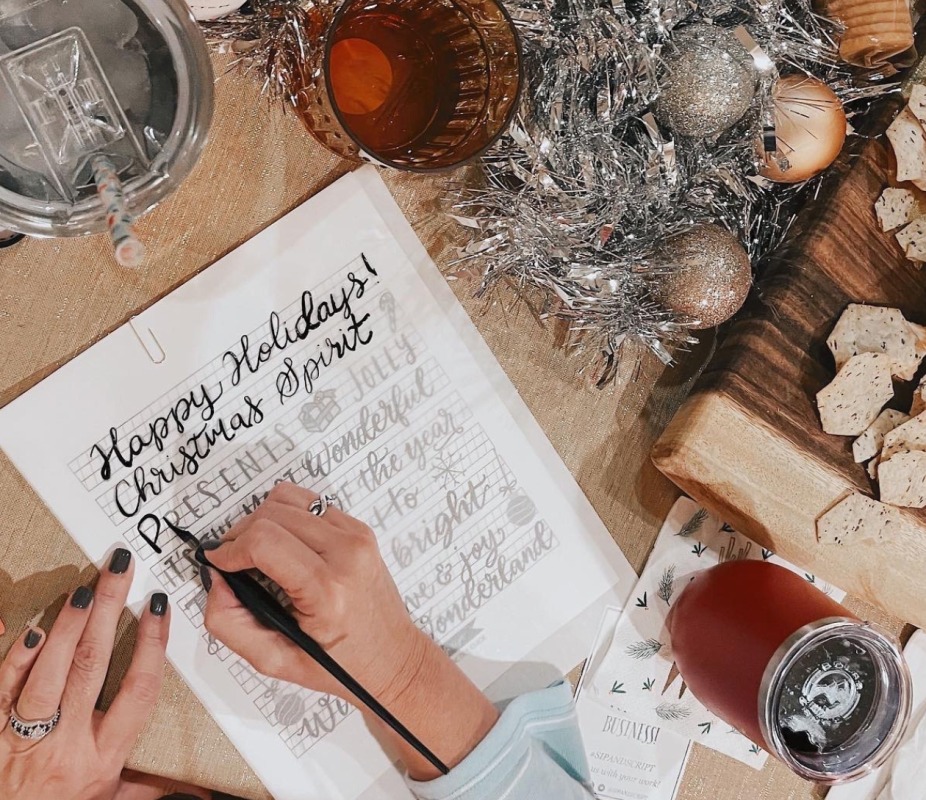 Happy Holidays!
Christmas Spirit
PRESENTS JOLLY
Most Wonderful
the year
to
bright
& joy
Wonderland
BUSINESS!
@SIPANDSCRIPT
us with your work!